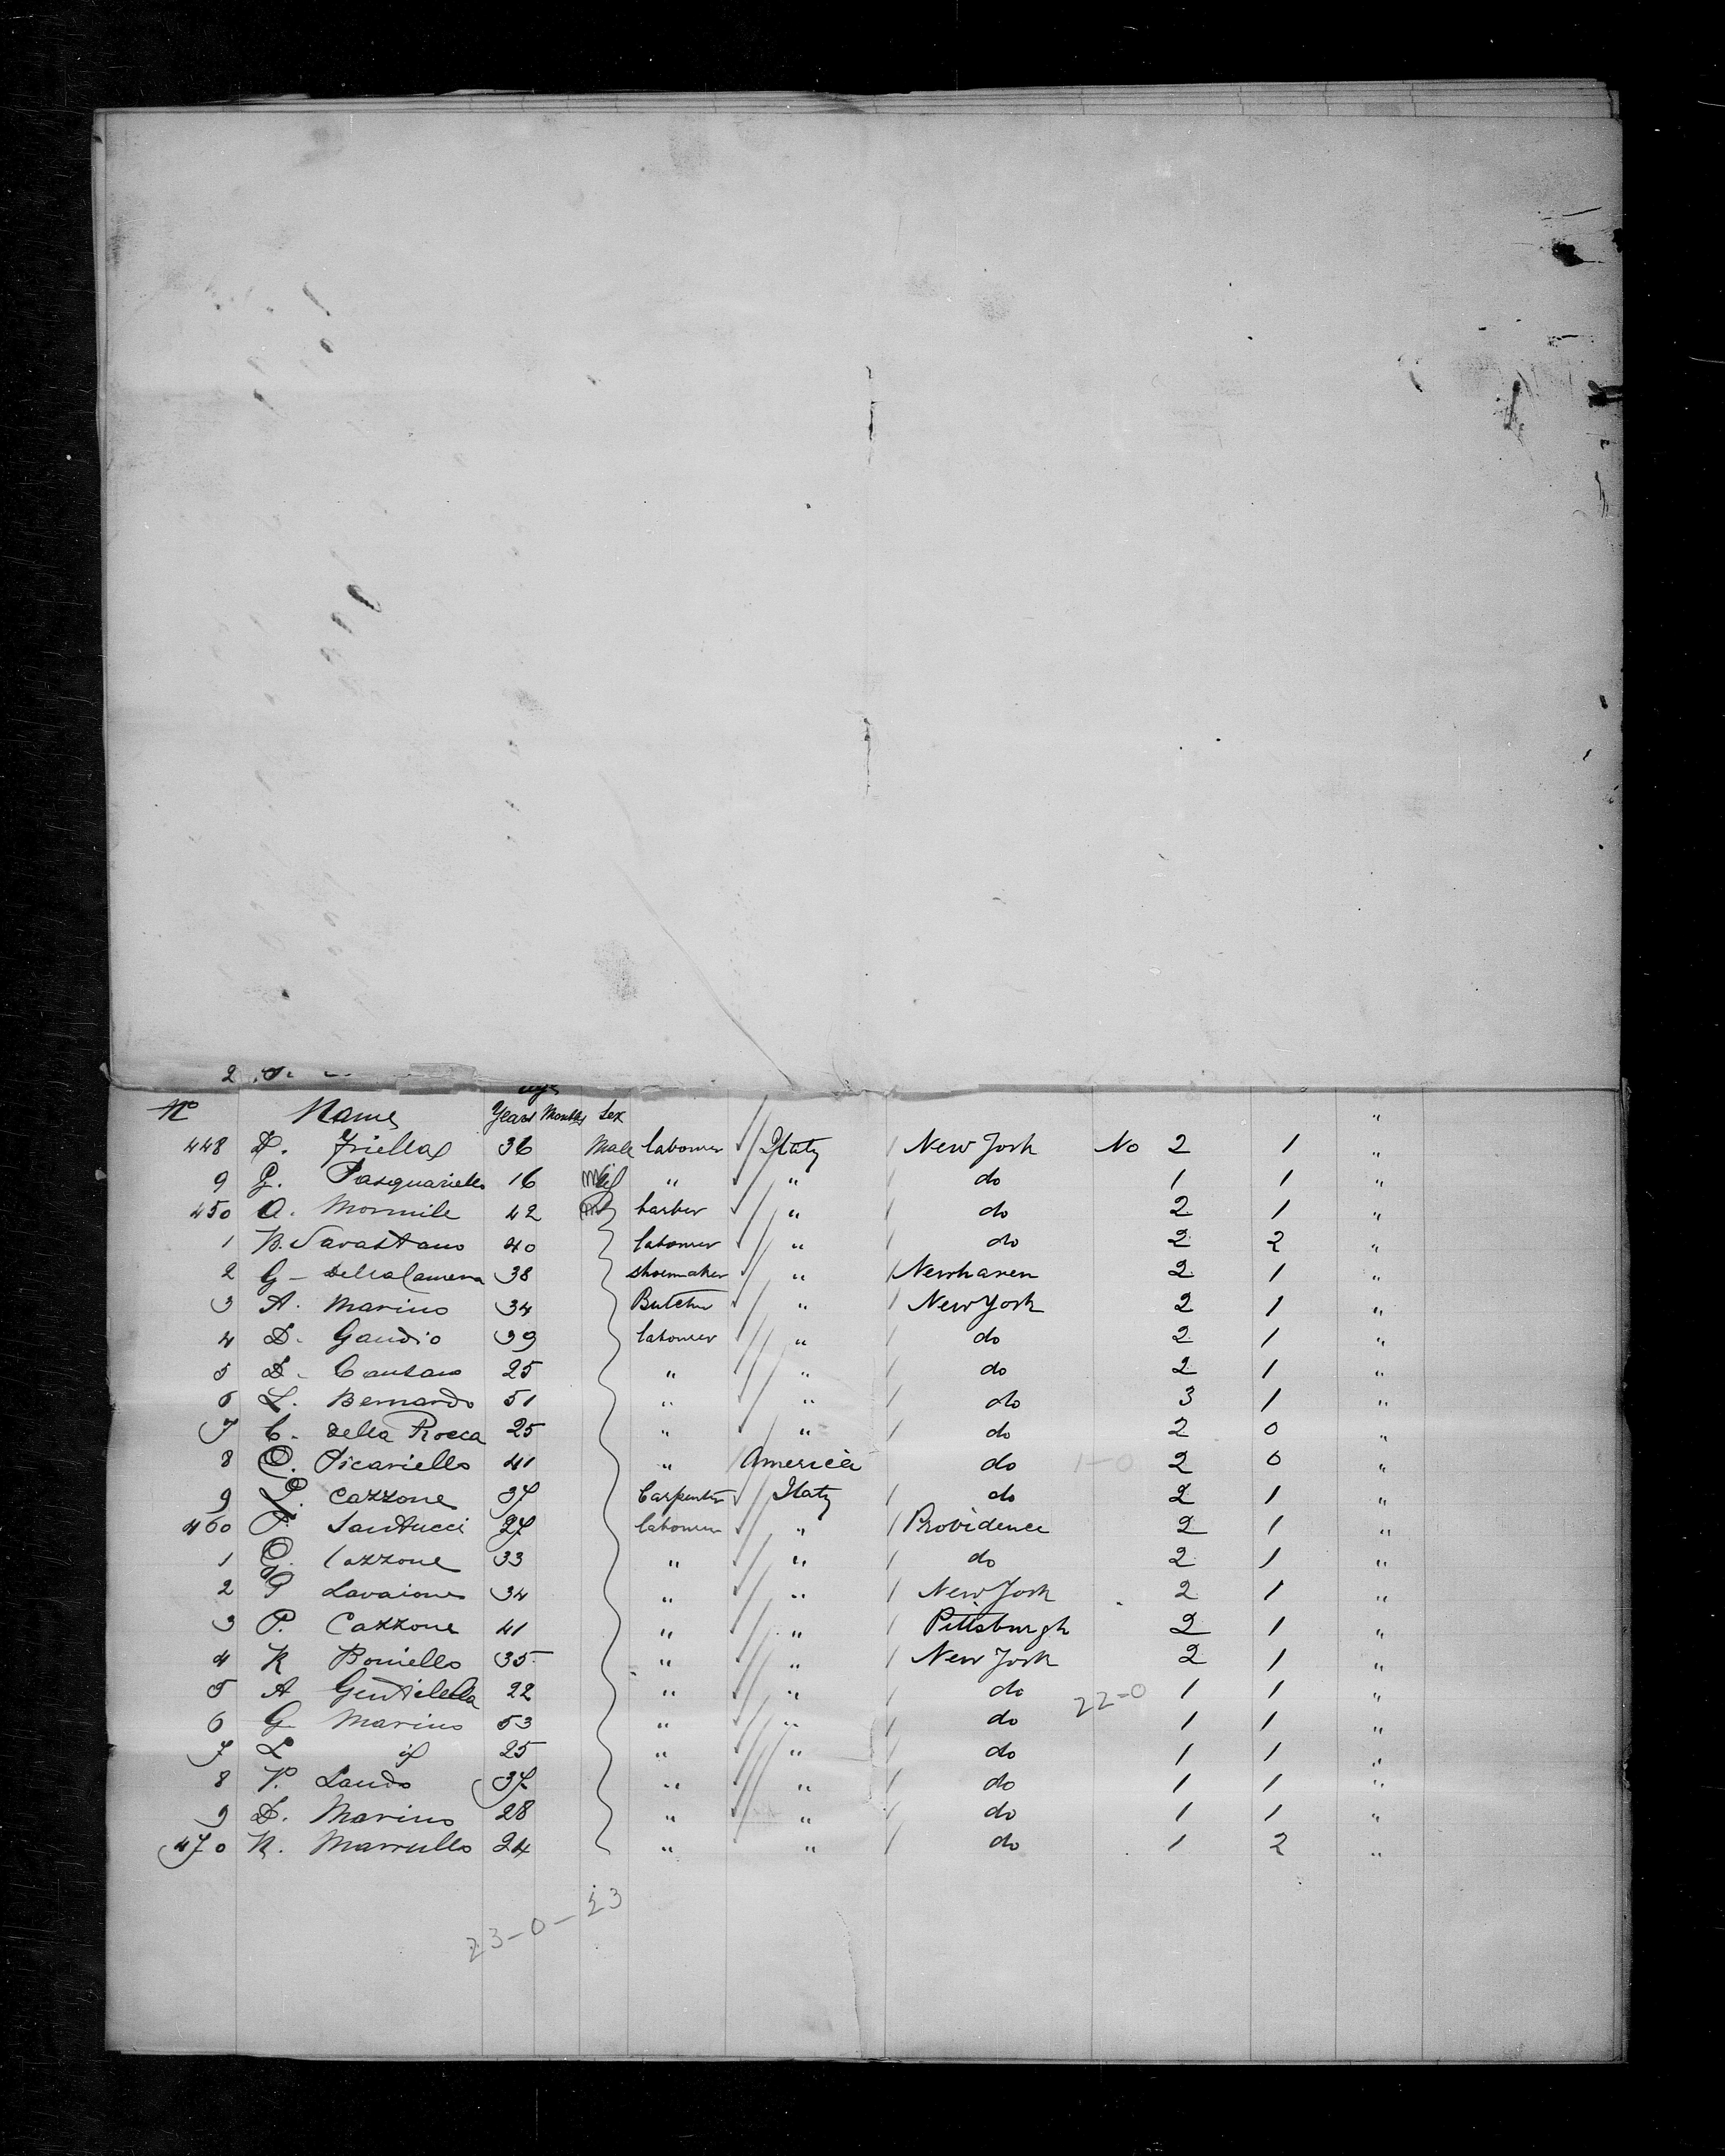 No Name Years Months Sex "
448 D. Friella 36 Male labourer Italy New York No 2 1 "
9 G. Pasquariello 16 " " do 1 1 "
450 A. Mormile 42 barber " do 2 1 "
1 N. Savastano 40 labourer " do 2 2 "
2 G - Della Camera 38 shoemaker " Newhaven 2 1 "
3 A. Marino 34 Butcher " New York 2 1 "
4 D. Gaudio 39 labourer " do 2 1 "
5 D. 25 " " do 2 1 "
6 L. Bernardo 51 " " do 3 1 "
7 C. Della Rocca 25 " " do 2 0 "
8 O. Picariello 41 " America do 1-0 2 0 "
9 Cazzone 37 Carpenter Italy do 2 1 "
460 P. Santucci 27 labourer " Providence 2 1 "
1 Cazzone 33 " " do 2 1 "
2 Lavaione 34 " " New York 2 1 "
3 P. Cazzone 41 " " Pittsburgh 2 1 "
4 R Boniello 35 " " New York 2 1 "
5 A Gentilella 22 " " do 22-0 1 1 "
6 G Marino 53 " " do 1 1 "
7 L id 25 " " do 1 1 "
8 V. Lando 37 " " do 1 1 "
9 D. Marino 28 " " do 1 1 "
470 N. Marrullo 24 " " do 1 2 "
23-0-23